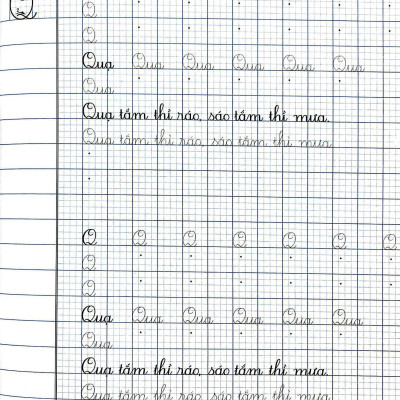 Q Q
Q
Quạ Quạ Quạ Quạ Quạ Quạ
Quạ
Quạ tắm thì ráo, sáo tắm thì mưa.
Quạ tắm thì ráo, sáo tắm thì mưa.
Q Q Q Q Q Q Q
Q
Q
Quạ Quạ Quạ Quạ Quạ Quạ
Quạ
Quạ tắm thì ráo, sáo tắm thì mưa.
Quạ tắm thì ráo, sáo tắm thì mưa.